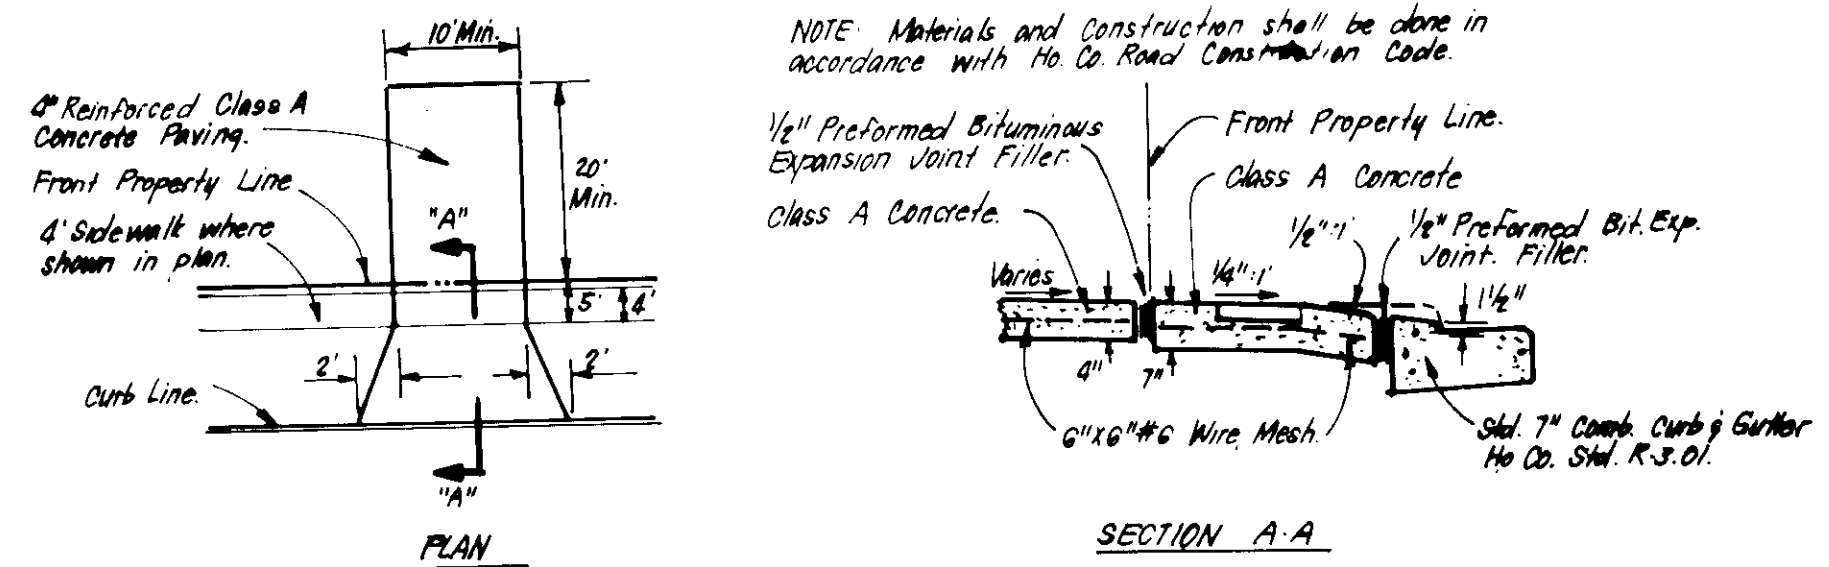 10' Min.
4" Reinforced Class A
Concrete Paving.
Front Property Line
4' Sidewalk where
shown in plan.
20'
Min.
"A"
5'
4'
2'
2'
Curb Line.
"A"
PLAN
NOTE: Materials and Construction shall be done in
accordance with Ho. Co. Road Construction Code.
1/2" Preformed Bituminous
Expansion Joint Filler.
Front Property Line.
Class A Concrete
Class A Concrete.
1/2":1'
1/2" Preformed Bit. Exp.
Joint. Filler.
Varies
1/4":1'
1 1/2"
4"
7"
6"x6"#6 Wire Mesh.
Std. 7" Comb. Curb & Gutter
Ho Co. Std. R-3.01.
SECTION A-A